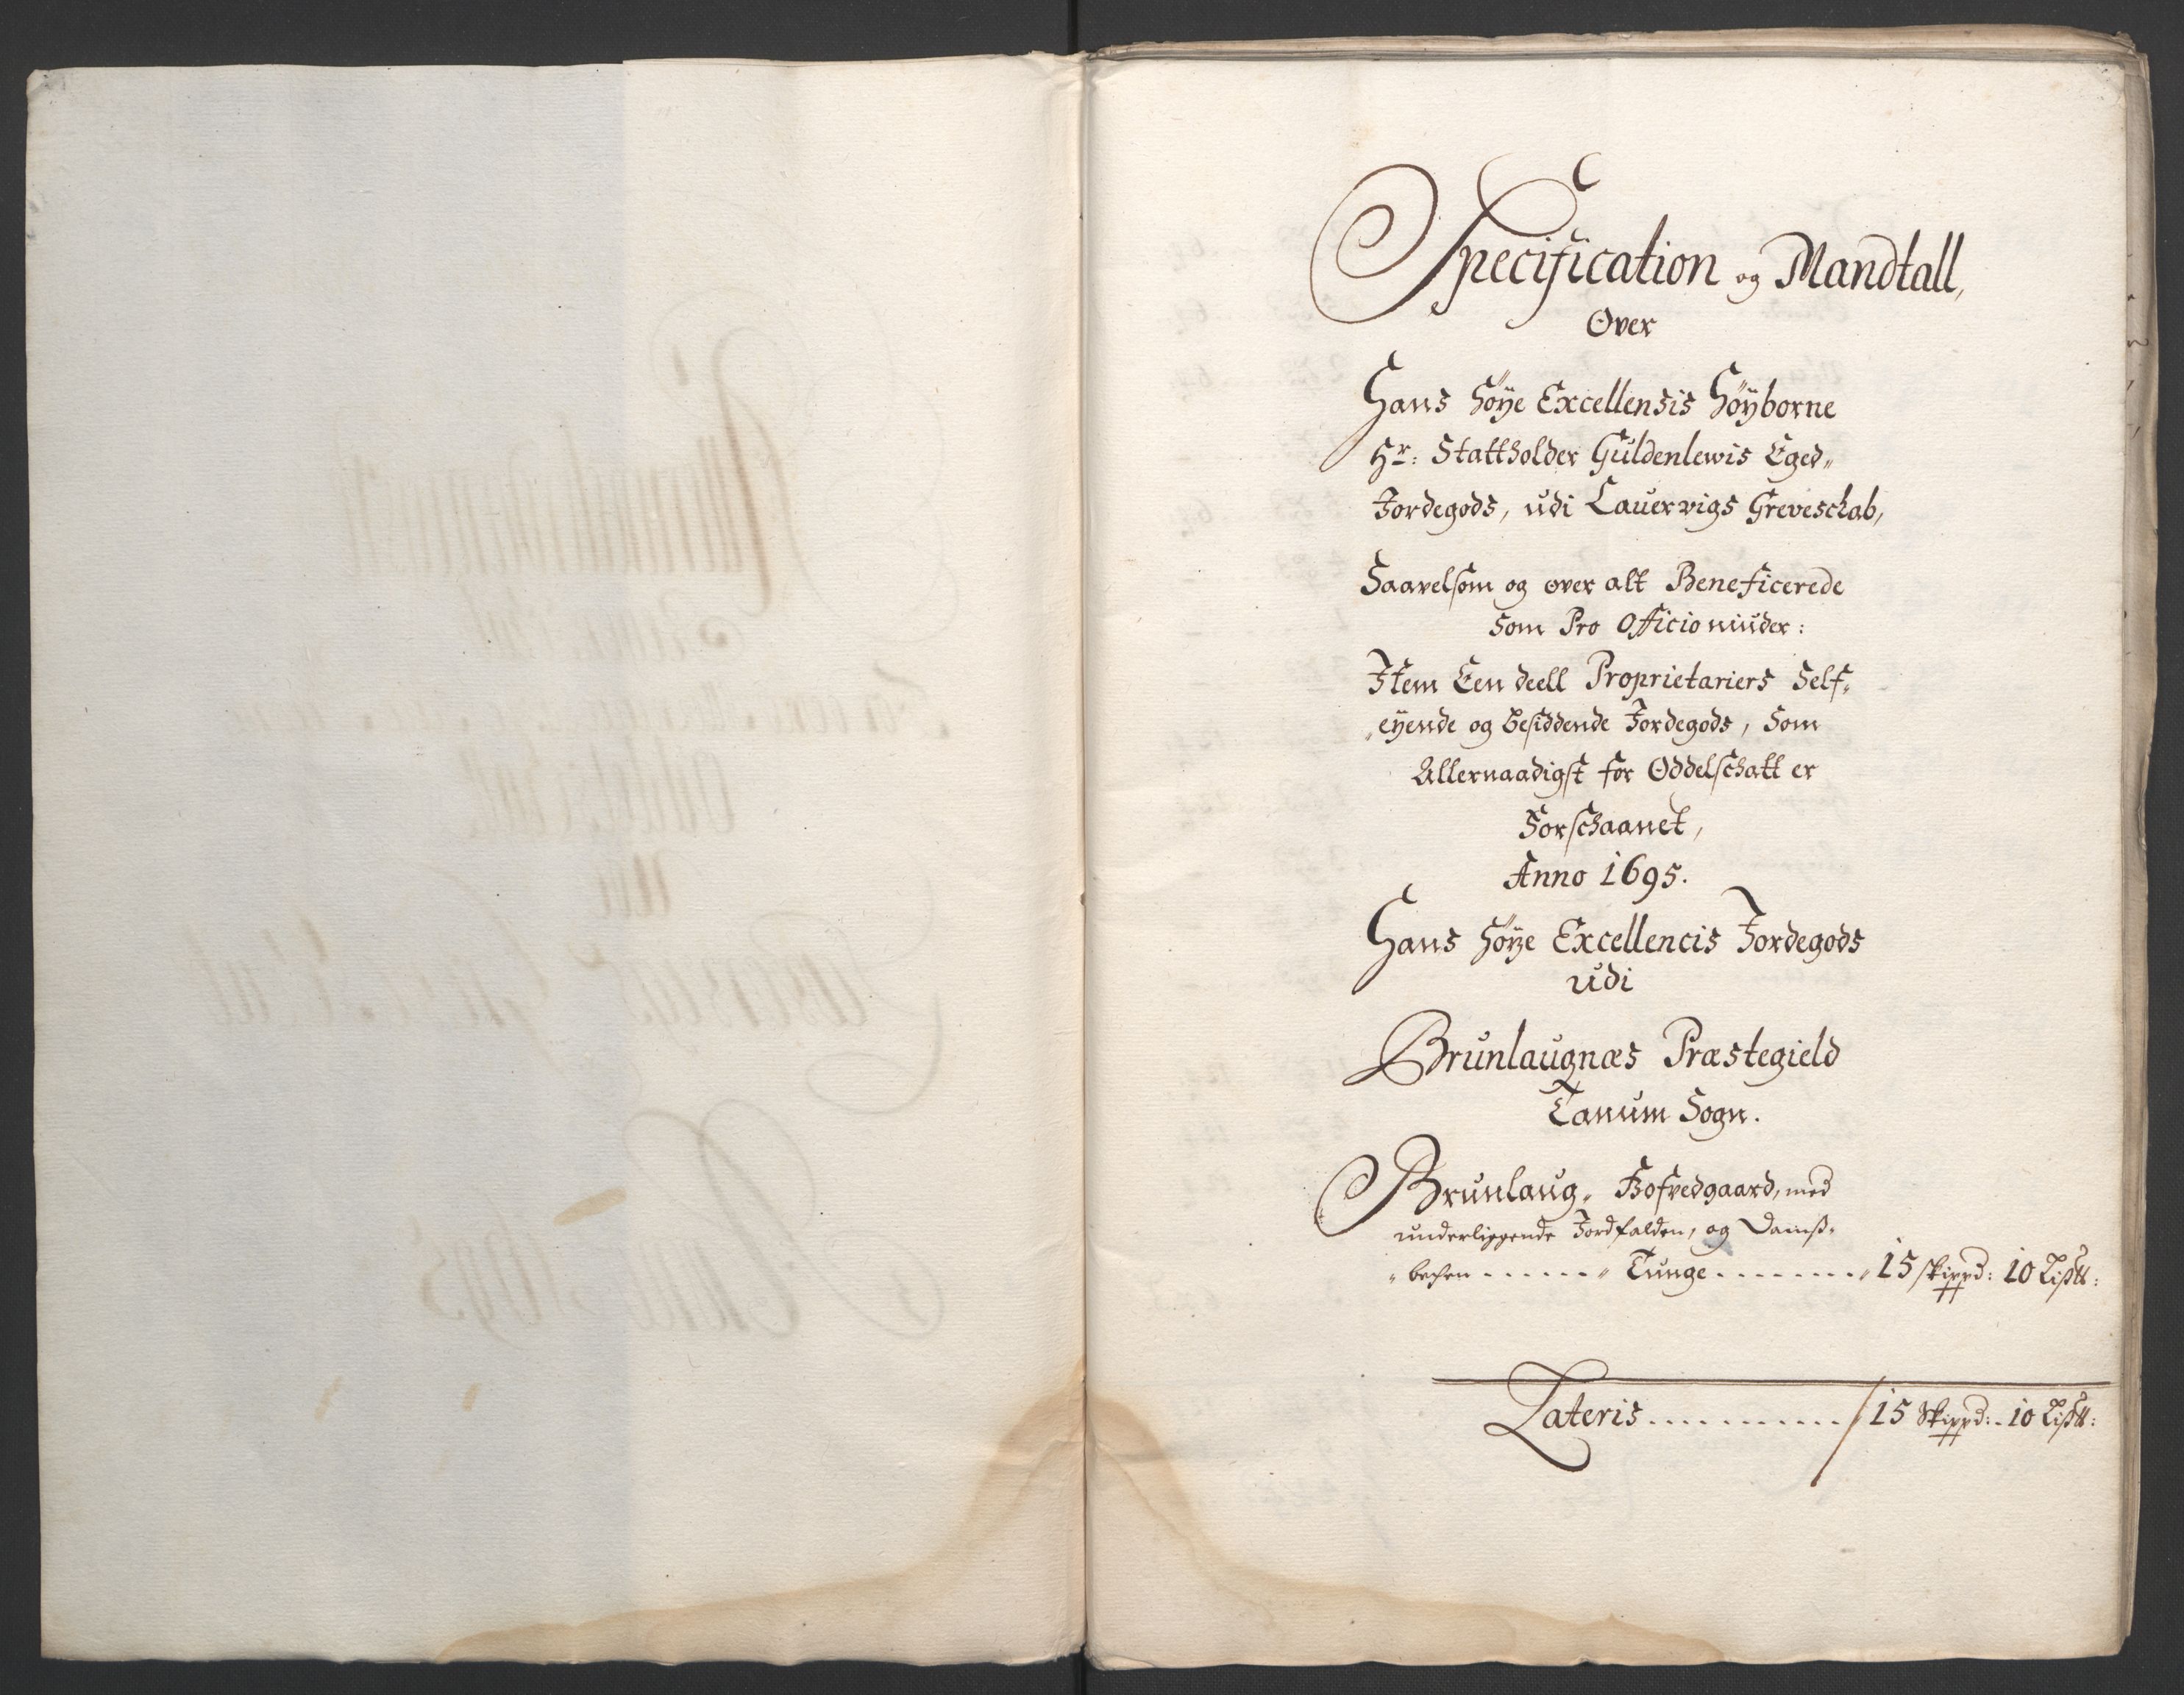 Specification og Mandtall,
Over
Hans Höÿe Excellensis Höÿborne
Hr: Stattholder Güldenlewis Eged„
Jordegods, udi Lauervigs Greveschab,
Saavelsom og over alt Beneficerede
Som Pro Officio niuder:
Item Een deell Proprietariers Self„
„eÿende og besiddende Jordegods, Som
Allernaadigst for Oddelschatt er
Forschaanet,
Anno 1695.
Hans Höÿe Excellencis Jordegods
udi
Brunlaugnæs Præstegield
Tanum Sogn.
Brunlaug„ Hofvedgaard, med
underliggende Jordfalden, og
„bechen ...... „ Tunge ....... „ 15 skippd: 10 Lis℔:
Lateris .......... 15 Skippd: 10 Lis℔: